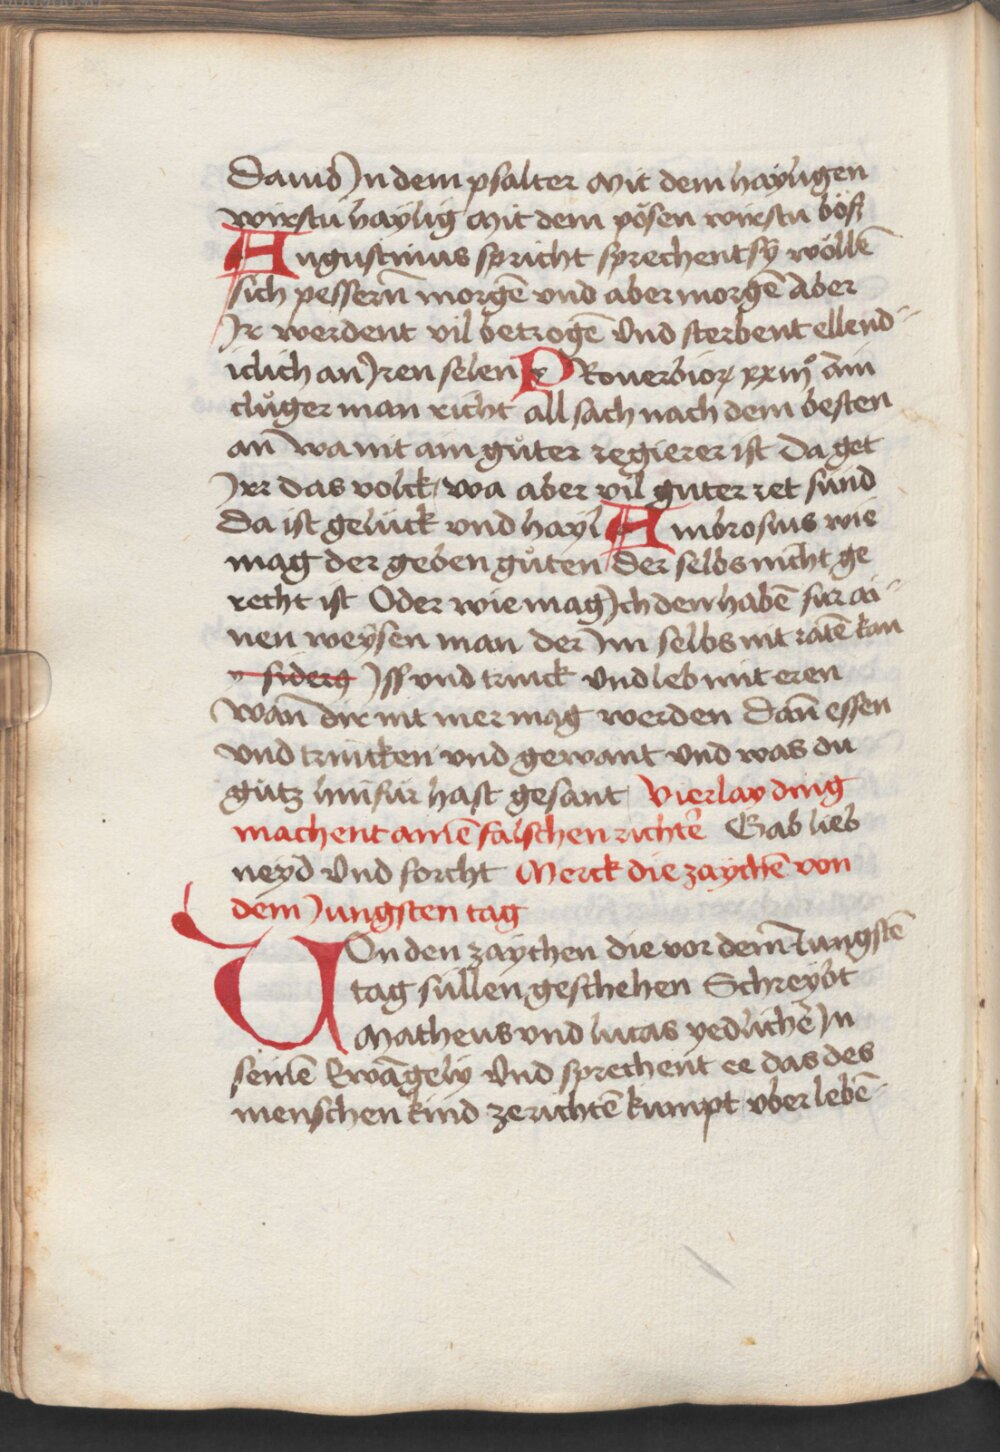 Dauid In dem psalter Mit dem hayligen
wirstu haylig Mit dem pösen wirstu böß
Augustinus spricht sprechent sy wöllē
sich pessern̄ morgē vnd aber morgē Aber
Ir werdent vil betrogē Vnd sterbent ellend
iclich an Iren selen PRouerbioꝝ xxiijº Ain
clůger man richt all sach nach dem besten
an̄ wa nit ain gůter regierer ist Da get
Irr das volck / wa aber vil guter ret sind
Da ist gelück vnd hayl Ambrosius wie
mag der geben gůten der selbs nicht ge
recht ist Oder wie mag Ich den habē für ai
nen weysen man der Im selbs nit ratē kan
Iss vnd trinck Vnd leb mit eren
Wan̄ dir nit mer mag werden Dan̄ essen
vnd trincken vnd gewant Vnd was du
gütz hinfür hast gesant Vierlay ding
machent ainē falschen richtē Gab lieb
neyd Vnd forcht Merck die zaychē von
dem Iungsten tag
VOn den zaychen die vor dem Iungstē
tag süllen geschehen Schreybt
Matheus vnd lucas yedlichē In
seinē Ewāgely Vnd sprechent ee das des
menschen kind ze richtē kumpt vber lebē